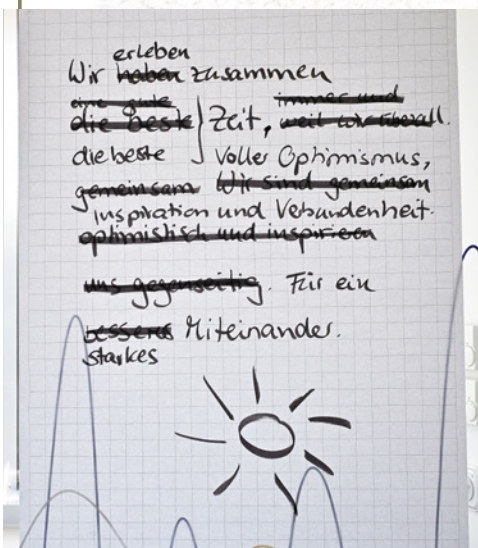 erleben
Wir haben zusammen
eine gute immer und
die beste } Zeit, weil wir überall.
die beste voller Optimismus,
gemeinsam Wir sind gemeinsam
Inspiration und Verbundenheit.
optimistisch und inspirieren
uns gegenseitig. Für ein
besseres Miteinander.
starkes